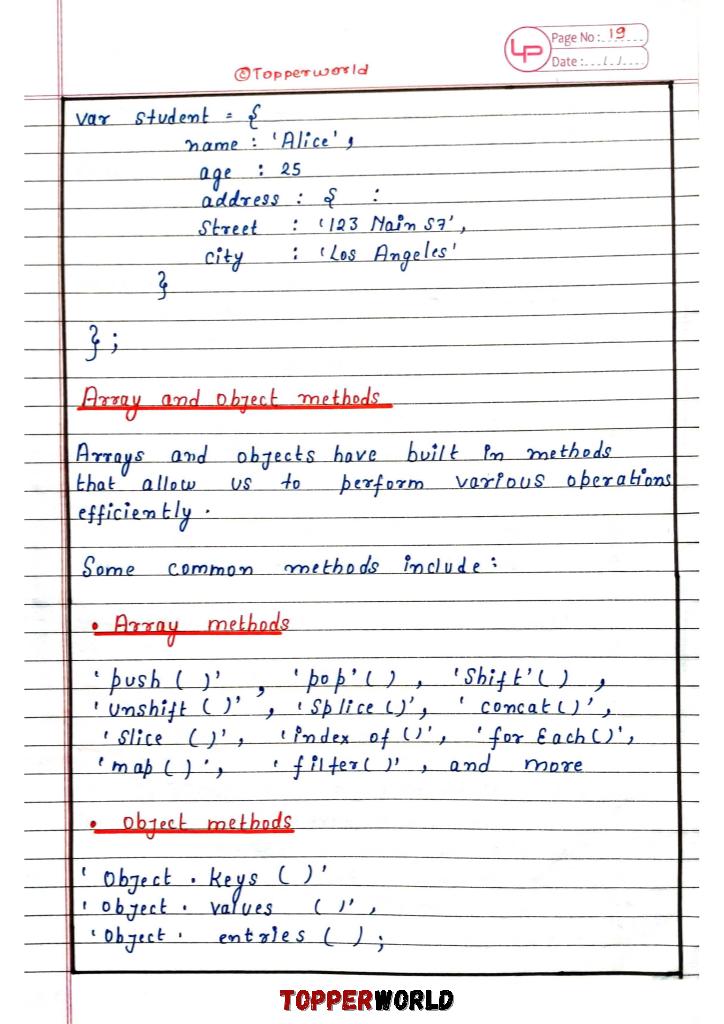 Page No: 19
Date:
©Topperworld
var student = {
name : 'Alice',
age : 25
address : { :
Street : '123 Main S7',
city : 'Los Angeles'
}
};
Array and Object methods
Arrays and objects have built in methods
that allow us to perform various operations
efficiently.
Some common methods include:
• Array methods
'push ( )' , 'pop'( ) , 'Shift'( ) ,
'Unshift ( )' , 'Splice ()', 'concat()',
'Slice ()', 'index of ()', 'for Each()',
'map ( )', 'filter( )' , and more
• Object methods
' Object . keys ( )'
' Object . values ( )',
'Object . entries ( ) ;
TOPPERWORLD